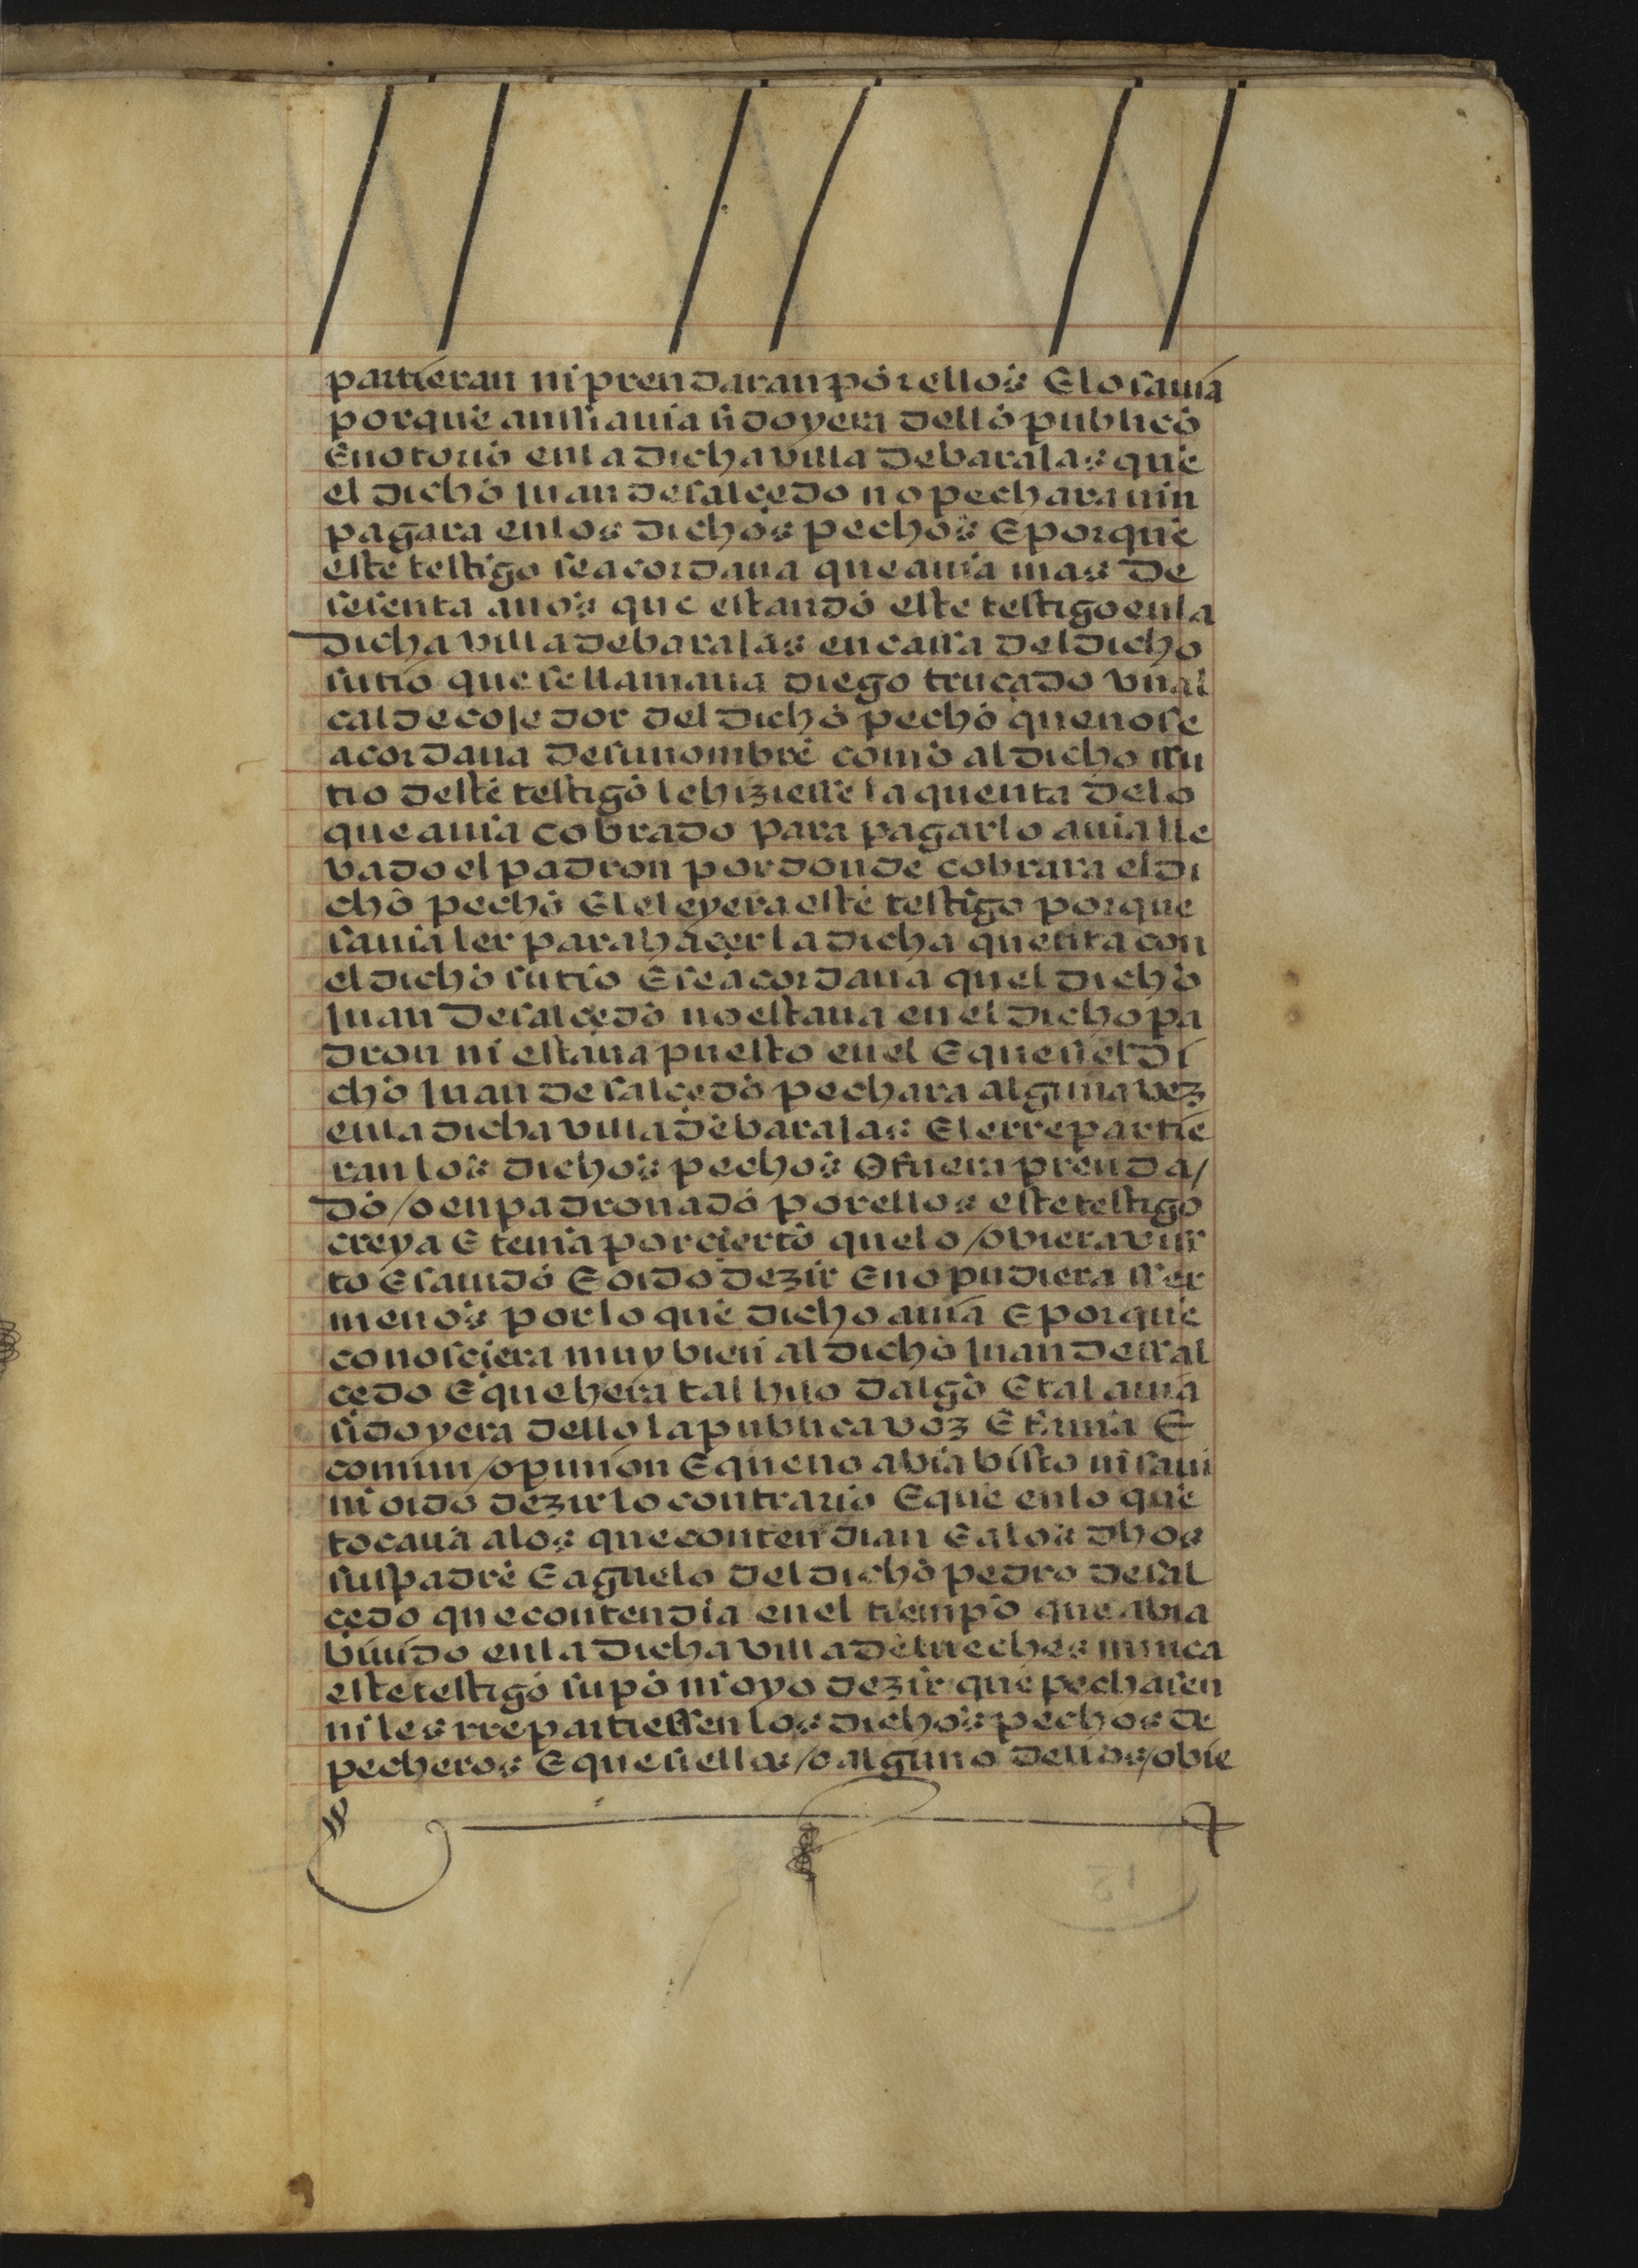 partieran ni prendaran por ellos E lo sauia
porque ansi auia sido y era dello publico
E notorio en la dicha villa de barajas que
el dicho Juan de salçedo no pechara nin
pagara en los dichos pechos E porque
este testigo se acordaua que auia mas de
sesenta anos que estando este testigo en la
dicha villa de barajas en cassa del dicho
su tio que se llamaua diego truçado vn al
calde cojedor del dicho pecho que no se
acordaua de su nombre como al dicho ssu
tio deste testigo le hiziesse la quenta de lo
que auia cobrado para pagarlo auia lle
vado el padron por donde cobrara el di
cho pecho E le leyera este testigo porque
sauia ler para haçer la dicha quenta con
el dicho su tio E se acordaua quel dicho
Juan de salçedo no estaua en el dicho pa
dron ni estaua puesto en el E que si el di
cho Juan de salçedo pechara alguna vez
en la dicha villa de barajas E le rrepartie
ran los dichos pechos O fuera prenda/
do /o enpadronado por ellos este testigo
creya E tenia por çierto que lo /obiera vis
to E sauido E oido dezir E no pudiera sser
menos por lo que dicho auia E porque
conosçiera muy bien al dicho Juan de ssal
çedo E que hera tal hijo dalgo E tal auia
sido y era dello la publica voz E fama E
comun /opinion E que no abia bisto ni saui
ni oido dezir lo contrario E que en lo que
tocaua a los que contendian E a los dhos
sus padre E aguelo del dicho pedro de sal
çedo que contendia en el tiempo que abia
biuido en la dicha villa de lueches nunca
este testigo supo ni oyo dezir que pechasen
ni les rrepartiessen los dichos pechos de
pecheros E que si ellos /o alguno dellos /obie